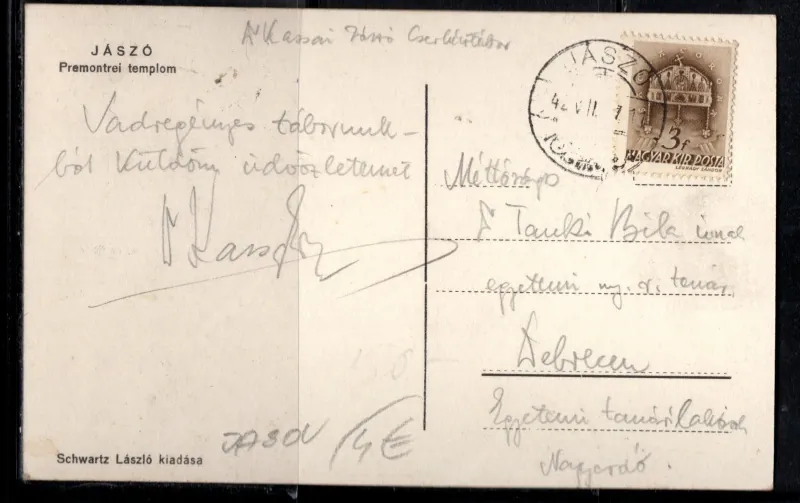 JÁSZÓ
Premontrei templom
Dr Kassai Jászó Cserkésztábor
Vadregényes táborunk-
ból küldöm üdvözletemet
Dr Kassai
JÁSZÓ
42 VII.
3f
MAGYAR KIR. POSTA
LÉGRÁDY SÁNDOR
Méltóságos
Dr Béla úrnak
egyetemi ny. r. tanár
Debrecen
Egyetemi tanári lakások
Nagyerdő.
JASOV
4€
Schwartz László kiadása